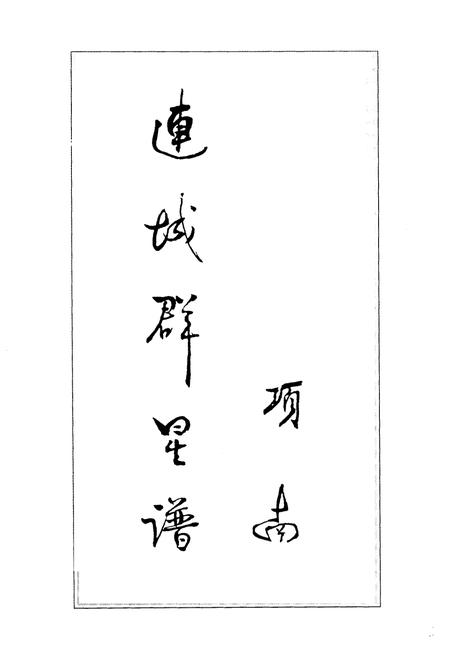 連城群星谱
项南